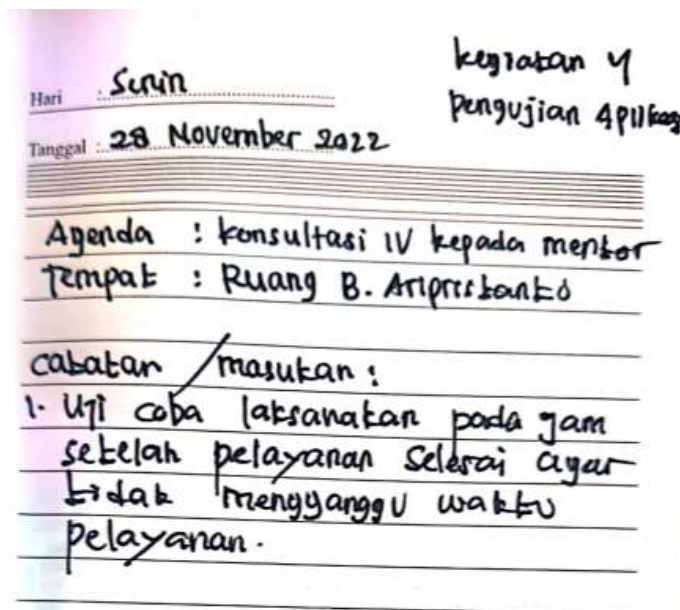 Hari : Senin
kegiatan 4
pengujian Aplikas
Tanggal : 28 November 2022
Agenda : konsultasi IV kepada mentor
Tempat : Ruang B. Aripristanto
catatan / masukan :
1. Uji coba laksanakan pada jam
setelah pelayanan selesai agar
tidak mengganggu waktu
pelayanan.